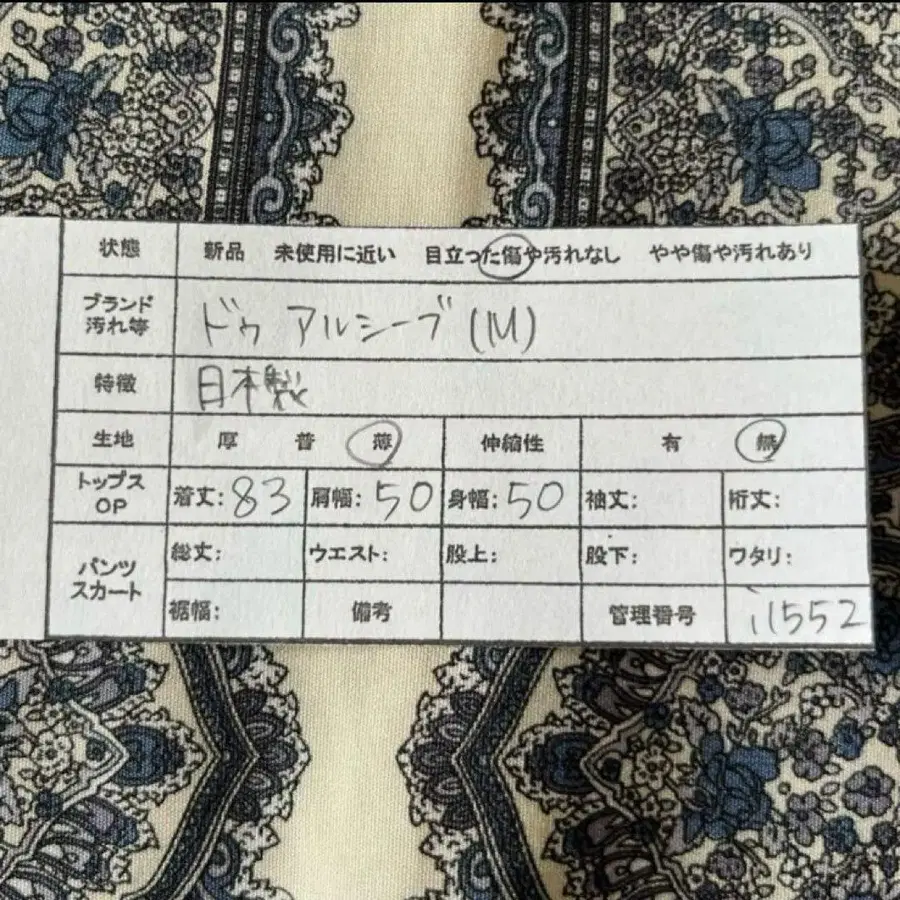 状態 新品 未使用に近い 目立った傷や汚れなし やや傷や汚れあり
ブランド
汚れ等
ドゥ アルシーブ (M)
特徴 日本製
生地 厚 普 薄 伸縮性 有 無
トップス
OP
着丈: 83 肩幅: 50 身幅: 50 袖丈: 裄丈:
パンツ
スカート
総丈: ウエスト: 股上: 股下: ワタリ:
裾幅: 備考 管理番号 i1552